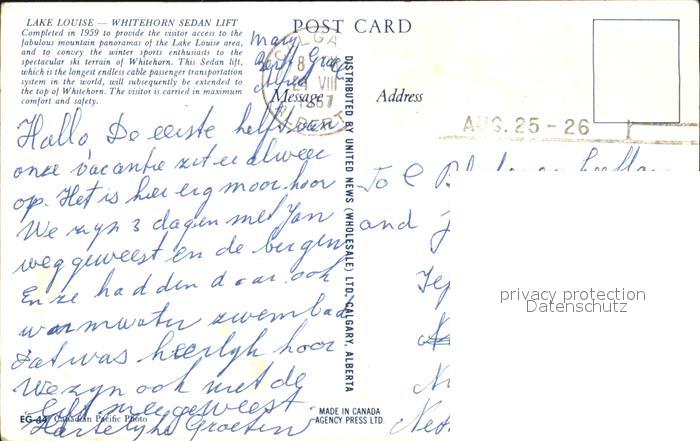 LAKE LOUISE — WHITEHORN SEDAN LIFT
Completed in 1959 to provide the visitor access to the
fabulous mountain panoramas of the Lake Louise area,
and to convey the winter sports enthusiasts to the
spectacular ski terrain of Whitehorn. This Sedan lift,
which is the longest endless cable passenger transportation
system in the world, will subsequently be extended to the
top of Whitehorn. The visitor is carried in maximum
comfort and safety.
POST CARD
Mary
Message
Address
AUG. 25 - 26
Hallo, De eerste helft van
onze vacantie zit er alweer
op. Het is hier erg mooi hoor
We zijn 3 dagen met Jan
weggeweest en de bergen
En ze hadden daar ook
warmwater zwembad
Dat was heerlijk hoor
We zijn ook met de
lift meegeweest
Hartelijke Groeten
To C
and J
DISTRIBUTED BY UNITED NEWS (WHOLESALE) LTD. CALGARY, ALBERTA
EG-44 Canadian Pacific Photo
MADE IN CANADA
AGENCY PRESS LTD.
privacy protection
Datenschutz